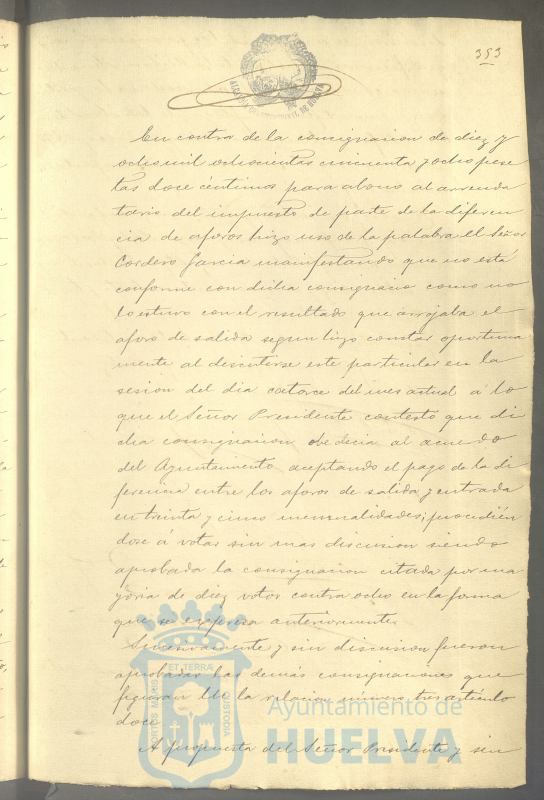 353
En contra de la consignacion de diez y
ocho mil ochocientas cincuenta y ocho pese
tas doce céntimos para abono al arrenda
tario del impuesto de parte de la diferen
cia de aforos hizo uso de la palabra el Señor
Cordero Garcia manifestando que no está
conforme con dicha consignacio como no
lo estuvo con el resultado que arrojaba el
aforo de salida segun hizo constar oportuna
mente al discutirse este particular en la
sesion del dia catorce del mes actual á lo
que el Señor Presidente contestó que di
cha consignacion obedecia al acuerdo
del Ayuntamiento aceptando el pago de la di
ferencia entre los aforos de salida y entrada
en treinta y cinco mensualidades; procedién
dose á votar sin mas discusion siendo
aprobada la consignacion citada por ma
yoria de diez votos contra ocho en la forma
que se expresa anteriormente.
Sucesivamente y sin discusion fueron
aprobadas las demás consignaciones que
figuran en la relacion número tres artículo
doce
A propuesta del Señor Presidente y sin
PORTUS MARIS ET TERRÆ CUSTODIA
Ayuntamiento de
HUELVA